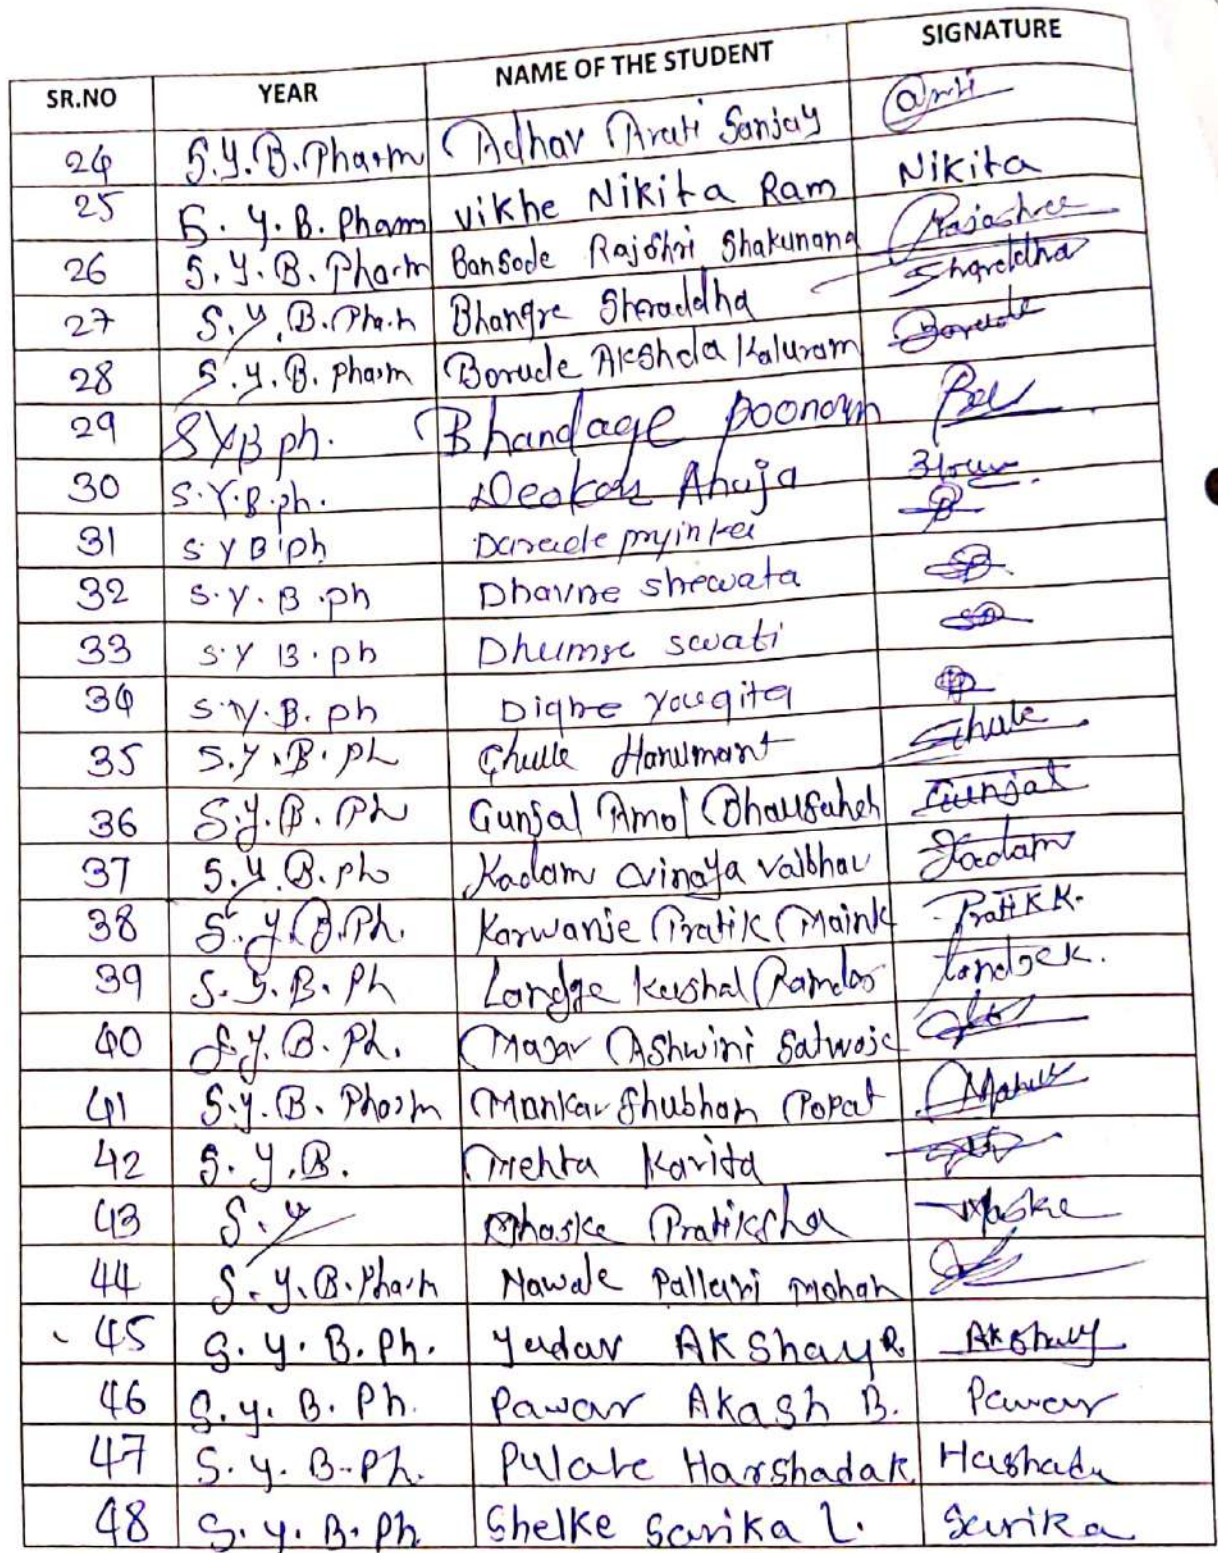 SR.NO YEAR NAME OF THE STUDENT SIGNATURE
24 S.Y.B.Pharm Adhav Arati Sanjay Arti
25 S.Y.B. Pharm Vikhe Nikita Ram Nikita
26 S.Y.B. Pharm Bansode Rajshri Shakunand Rajashree
27 S.Y.B.Pharm Bhangre Shraddha Sharddha
28 S.Y.B. Pharm Borude Akshda Kaluram Borude
29 SYB ph. Bhandage poonam
30 S.Y.B.ph. Deokar Ahuja
31 S Y B ph Darade
32 S.Y.B.ph Dhavne shewata
33 S.Y B.ph Dhumse swati
34 S.Y.B.ph Dighe Yougita
35 S.Y.B.Ph Ghule Hanumant Ghule
36 S.Y.B.Ph Gunjal Amol Bhausaheb Gunjal
37 S.Y.B.ph Kadam Vinaya Vaibhav Kadam
38 S.Y.B.Ph. Karwanje Pratik Maink Pratik K.
39 S.Y.B.Ph Landge Kushal Ramdas Landge K.
40 S.Y.B.Ph. Magar Ashwini
41 S.Y.B. Pharm Mankar Shubham Popat
42 S.Y.B. Mehta
43 S.Y Mhaske Pratiksha Maske
44 S.Y.B.Pharm Nawale Pallavi mohan
45 S.Y.B.Ph. Yadav AKShay R. Akshay
46 S.Y.B.Ph. Pawar AKash B. Pawar
47 S.Y.B.Ph. Pulate Harshada K Hashada
48 S.Y.B.Ph Shelke Sarika L. Sarika